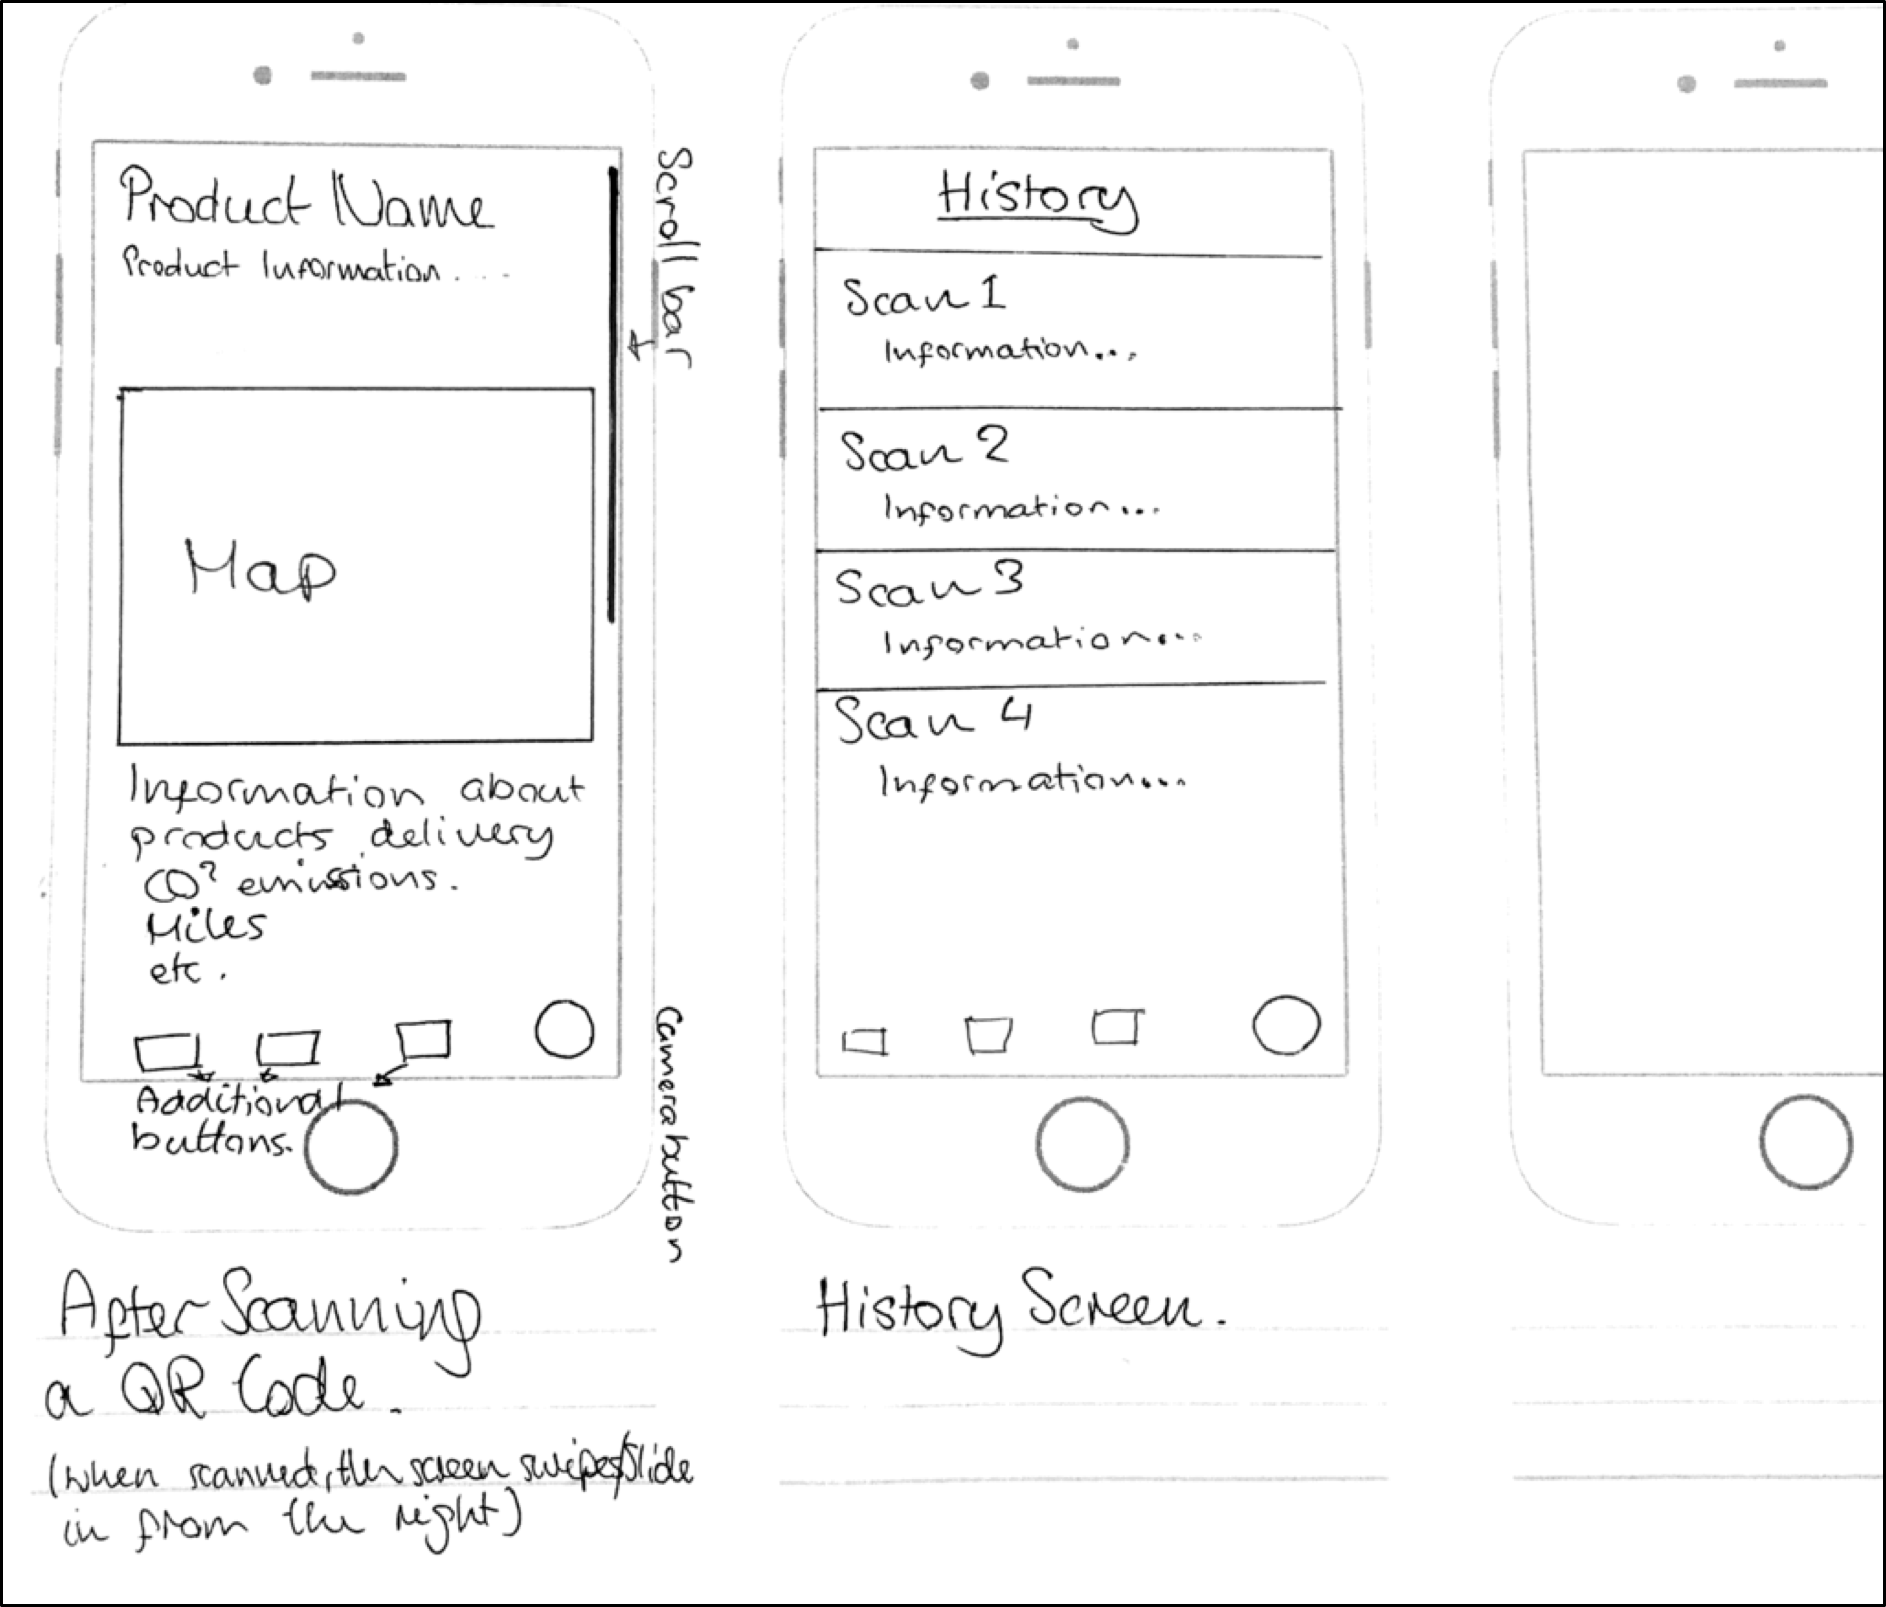 Product Name
Product Information....
Scroll bar
Map
Information about
products delivery
CO² emissions.
Miles
etc.
Additional
buttons.
Camera button
After Scanning
a QR Code.
(when scanned, the screen swipes/slide
in from the right)
History
Scan 1
Information...
Scan 2
Information...
Scan 3
Information...
Scan 4
Information...
History Screen.